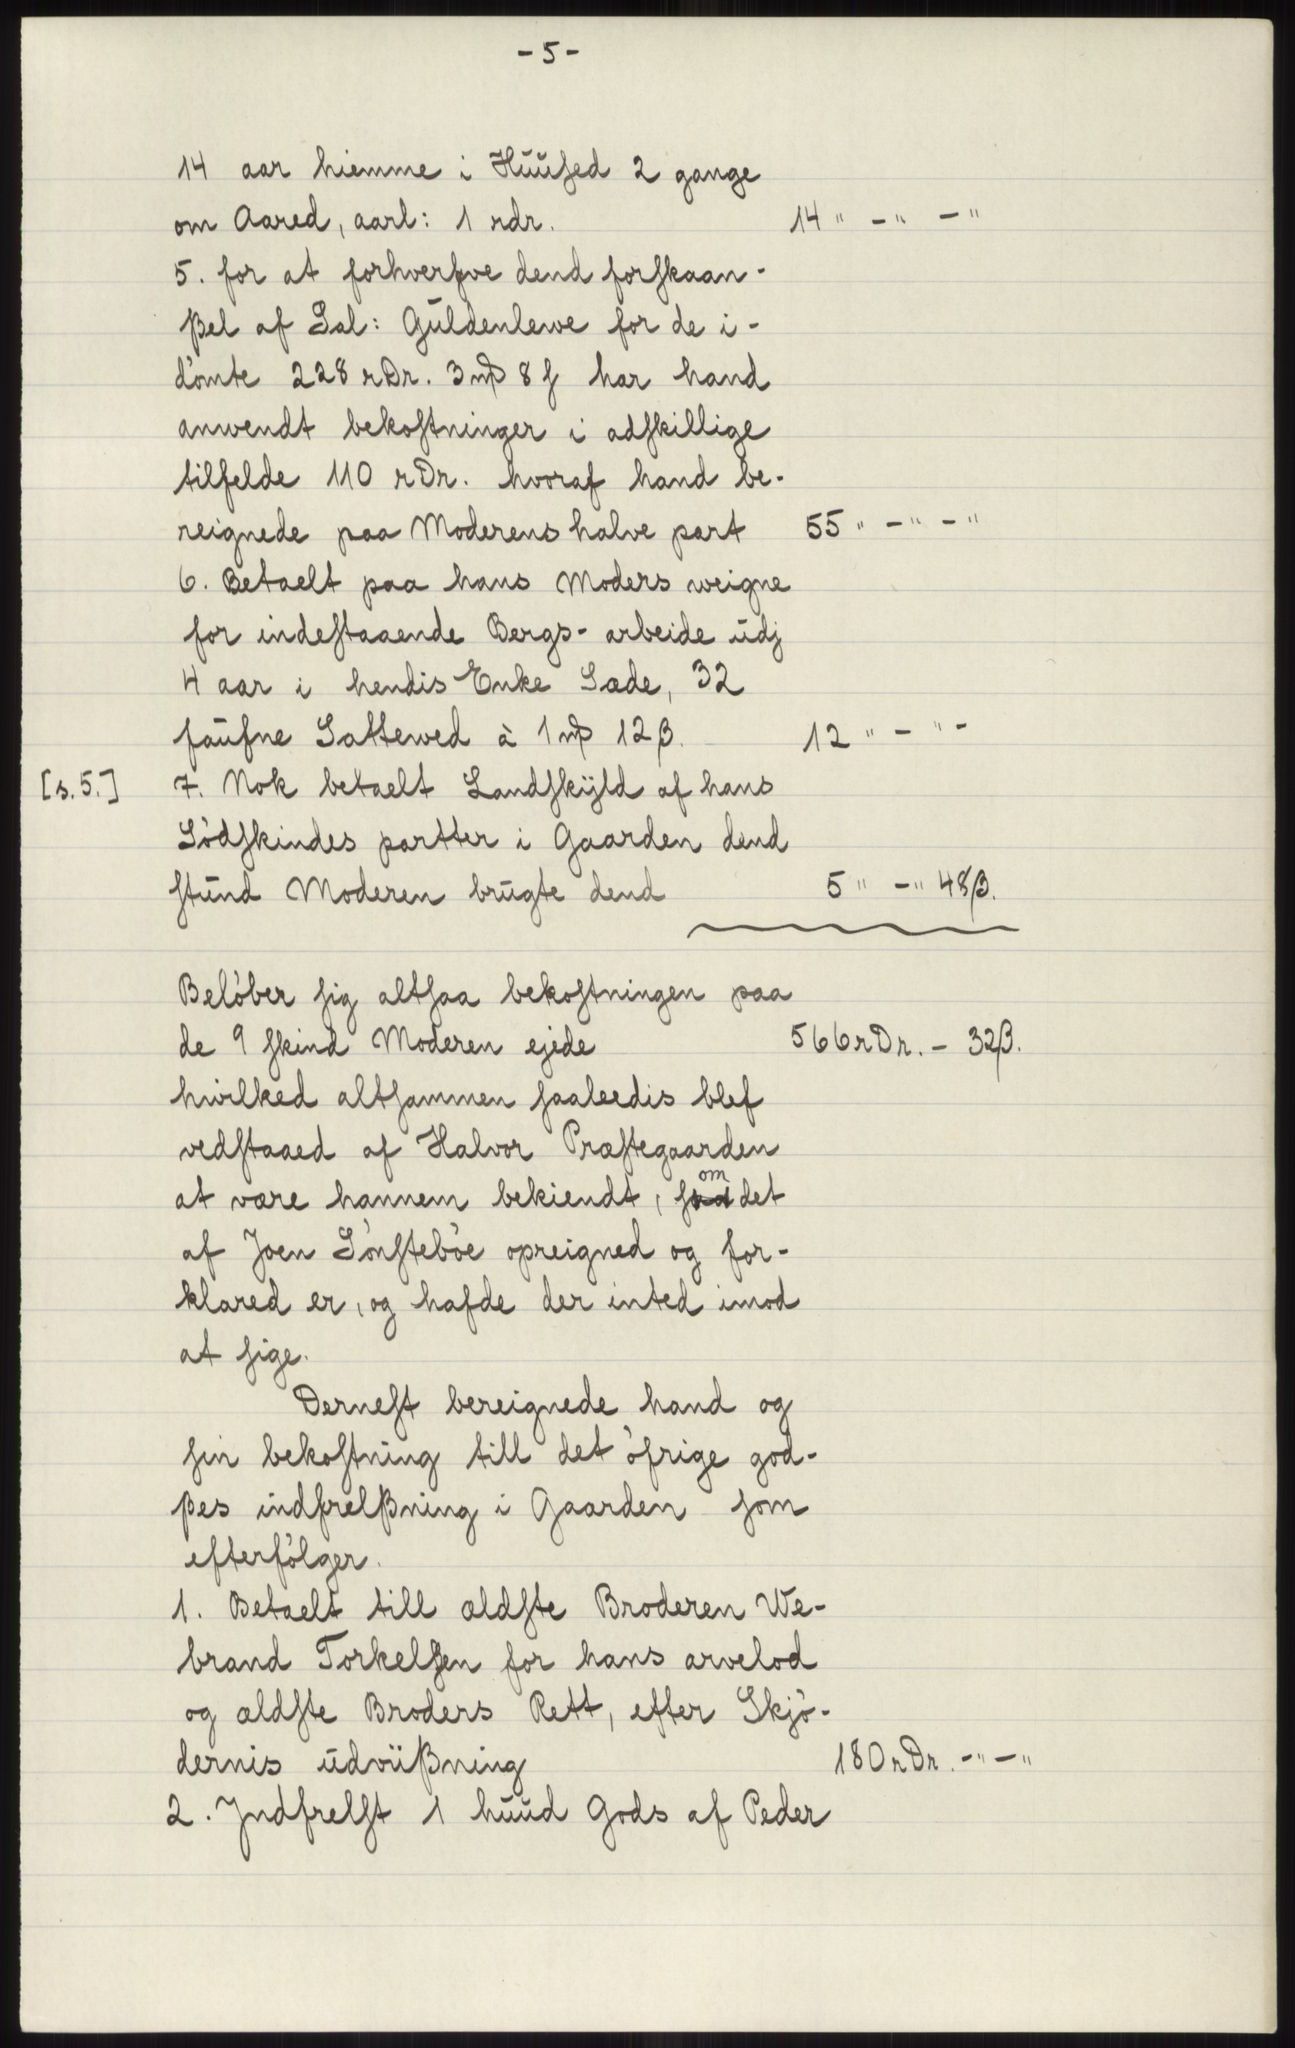 - 5 -
14 aar hiemme i Huused 2 gange
om Aared, aarl: 1 rdr. 14 " - " - "
5. for at forhverfve dend forskaan-
ßel af Sal: Guldenlewe for de i-
dömte 228 rDr. 3 mþ 8 ſ har hand
anwendt bekostninger i adskillige
tilfelde 110 rDr. hvoraf hand be-
reignede paa Moderens halve part 55 " - " - "
6. Betaelt paa hans Moders weigne
for indestaaende Bergs-arbeide udj
4 aar i hendis Enke Sæde, 32
faufne Settewed à 1 mþ 12 β. 12 " - " -
[s. 5.] 7. Nok betaelt Landskyld af hans
Södskindes partter i Gaarden dend
stund Moderen brugte dend 5 " - " 48 β.
Belöber sig altsaa bekostningen paa
de 9 skind Moderen ejede 566 rDr. - 32 β.
hvilked altsammen saaleedis blef
vedstaaed af Halvor Præstegaarden
at være hannem bekiendt, som det
af Joen Sönsteböe opreigned og for-
klared er, og hafde der inted imod
at sige.
Dernest bereignede hand og
sin bekostning till det öfrige god-
ßes indfrelßning i Gaarden som
efterfölger.
1. Betaelt till ældste Broderen We-
brand Torkelsen for hans arvelod
og ældste Broders Rett, efter Skjö-
dernis udviißning 180 rDr. - " - "
2. Jndfrelst 1 huud Gods af Peder